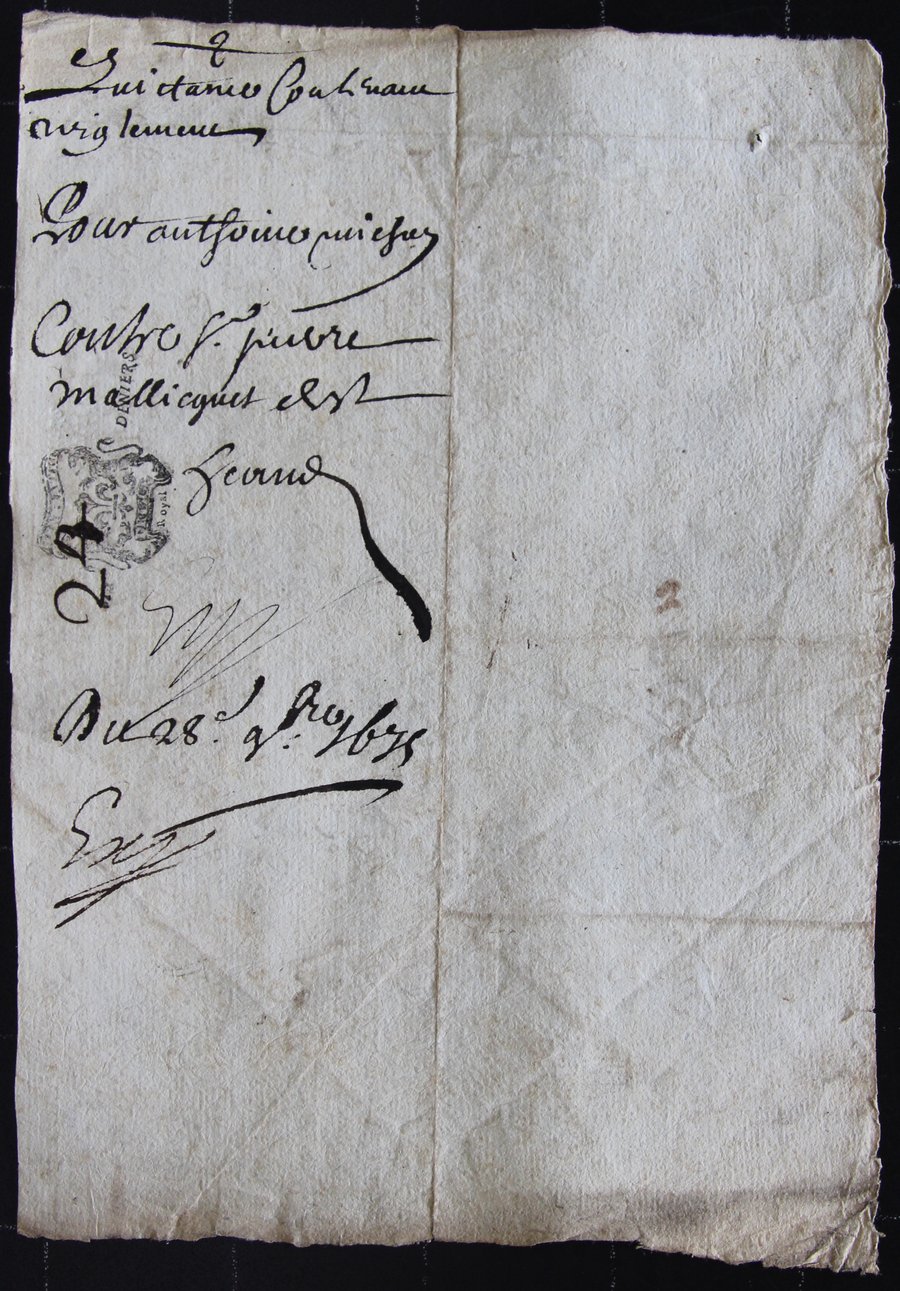 2
Quictance Contenant
reiglement
Pour anthoine michon
Contre Sr. pierre
mallicquet
DENIERS
Royal
24
Du 28e. 9bre 1675
Exp